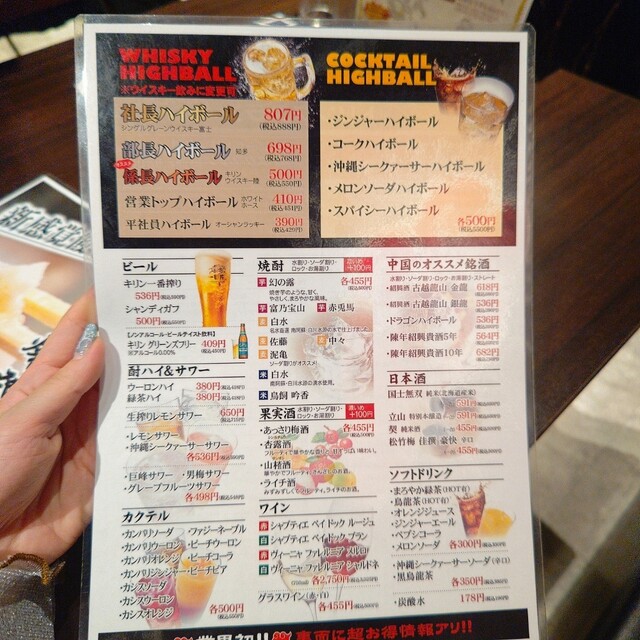 WHISKY
HIGHBALL
※ウイスキー飲みに変更可
社長ハイボール 807円
シングルグレーンウイスキー富士 (税込888円)
部長ハイボール 知多 698円
(税込768円)
係長ハイボール キリンウイスキー陸 500円
(税込550円)
営業トップハイボール ホワイトホース 410円
(税込451円)
平社員ハイボール オーシャンラッキー 390円
(税込429円)
COCKTAIL
HIGHBALL
・ジンジャーハイボール
・コークハイボール
・沖縄シークァーサーハイボール
・メロンソーダハイボール
・スパイシーハイボール
各500円
(税込550円)
ビール
キリン一番搾り
536円
シャンディガフ
500円
【ノンアルコール・ビールテイスト飲料】
キリン グリーンズフリー 409円
※アルコール0.00%
酎ハイ&サワー
ウーロンハイ 380円
緑茶ハイ 380円
生搾りレモンサワー
650円
・レモンサワー
・沖縄シークァーサーサワー
各536円
・巨峰サワー ・男梅サワー
・グレープフルーツサワー
各498円
カクテル
・カンパリソーダ ・ファジーネーブル
・カンパリウーロン ・ピーチウーロン
・カンパリオレンジ ・ピーチコーラ
・カンパリジンジャー ・ピーチビア
・カシスソーダ
・カシスウーロン
・カシスオレンジ 各500円
焼酎 水割り・ソーダ割り・ロック・お湯割り 濃いめ+100円
芋 幻の露 各455円
焼き芋のような、甘く、
やさしく、まろやかな風味。
芋 富乃宝山 芋 赤兎馬
麦 白水
麦 佐藤 麦 中々
麦 泥亀
ソーダ割りがオススメ!
米 白水
米 鳥飼 吟香
果実酒 水割り・ソーダ割り・ロック・お湯割り 濃いめ+100円
・あっさり梅酒 各455円
・杏露酒
・山樝酒
・ライチ酒
みずみずしくもフルーティ。ライチのお酒。
ワイン
赤 シャプティエ ペイ ドック ルージュ
白 シャプティエ ペイ ドック ブラン
赤 ヴィーニャ ファレルニア メルロ
白 ヴィーニャ ファレルニア シャルドネ
各2,750円
グラスワイン(赤・白) 各455円
中国のオススメ銘酒
水割り・ソーダ割り・ロック・お湯割り・ストレート
・紹興酒 古越龍山 金龍 618円
・紹興酒 古越龍山 銀龍 536円
・ドラゴンハイボール 536円
・陳年紹興貴酒5年 564円
・陳年紹興貴酒10年 682円
日本酒
国士無双 純米(北海道産米)
591円
立山 特別本醸造 591円
葵 純米酒 455円
松竹梅 佳撰 豪快 辛口
455円
ソフトドリンク
・まろやか緑茶(HOT有)
・烏龍茶(HOT有)
・オレンジジュース
・ジンジャーエール
・ペプシコーラ
・メロンソーダ 各300円
・沖縄シークァーサーソーダ(辛口)
・黒烏龍茶
各350円
・炭酸水 178円
業界初!! 裏面に超お得情報アリ!!